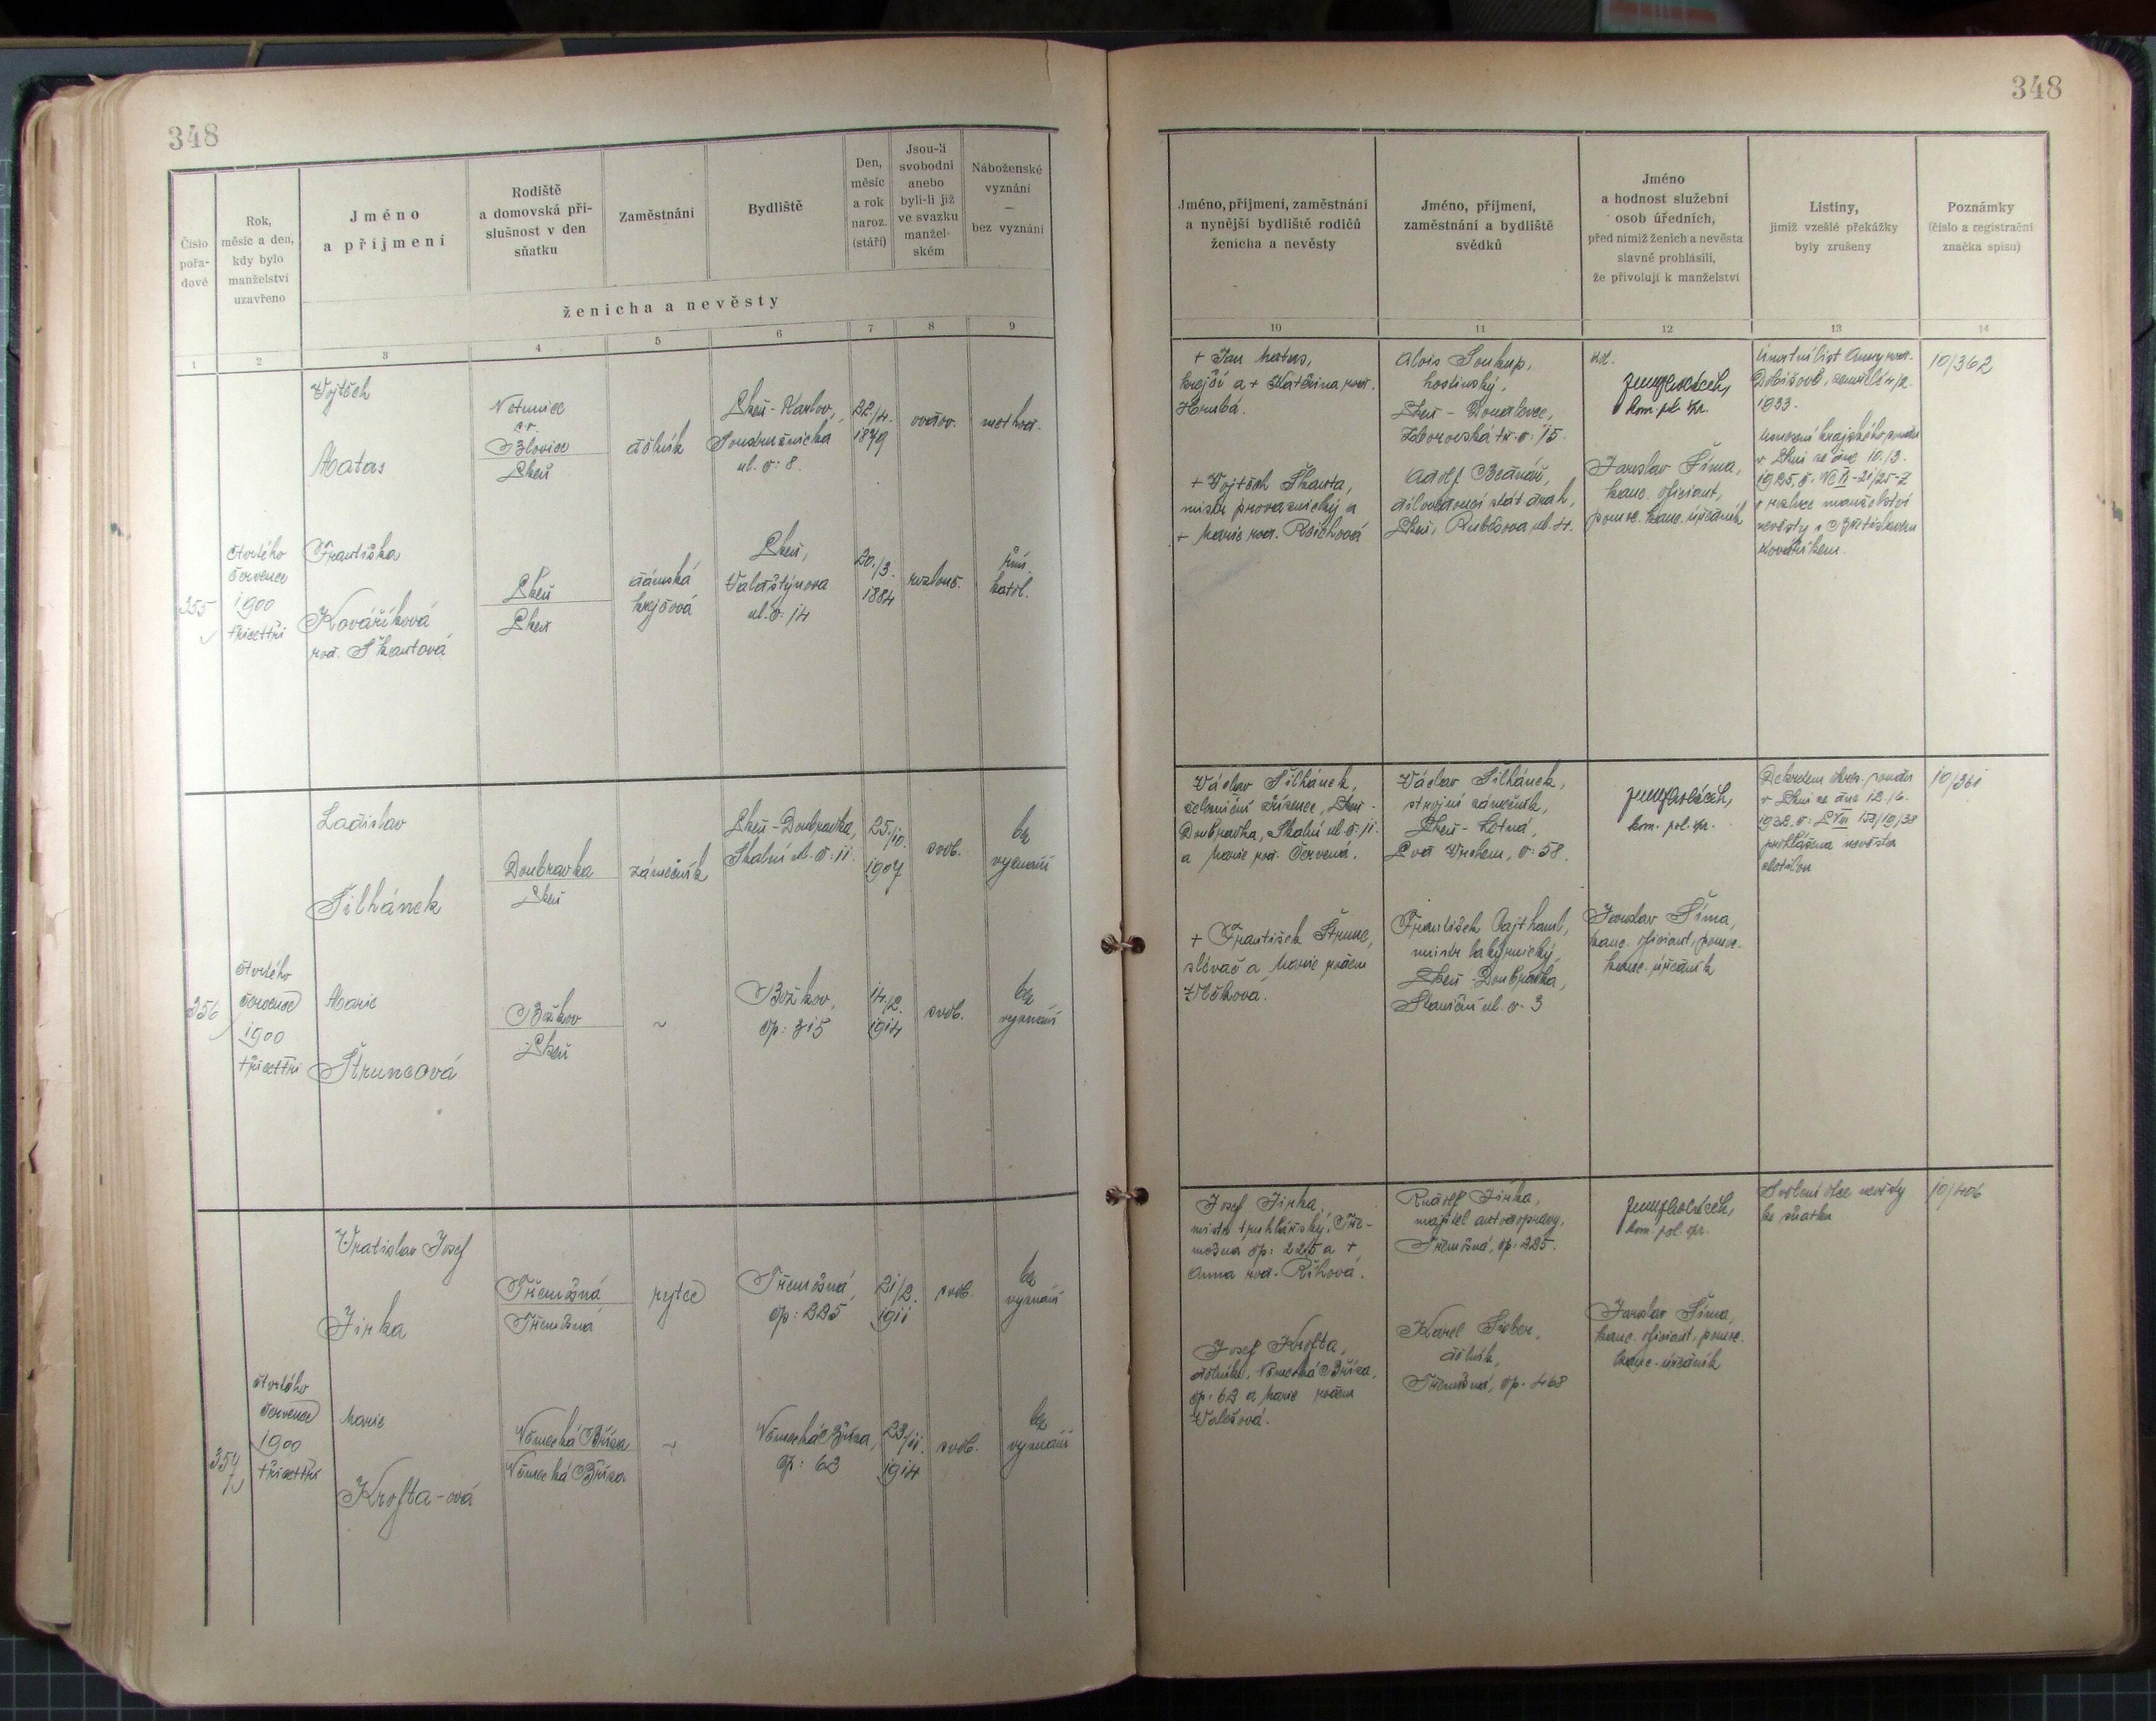 348
348
Číslo pořa-dové
Rok, měsíc a den, kdy bylo manželství uzavřeno
Jméno a příjmení
Rodiště a domovská pří-slušnost v den sňatku
Zaměstnání
Bydliště
Den, měsíc a rok naroz. (stáří)
Jsou-li svobodni anebo byli-li již ve svazku manžel-ském
Náboženské vyznání — bez vyznání
ženicha a nevěsty
1 2 3 4 5 6 7 8 9
Vojtěch
Matas
Blovice
Plzeň
dělník
Plzeň-Karlov,
ul. č: 8.
22./4.
1879
ovdov.
355
čtvrtého
července
1900
třicettři
Františka
Kovaříková
roz. Škantová
Plzeň
Plzeň
dámská
krejčová
Plzeň,
Valdštýnova
ul. č. 14
20./3.
1884
rozlouč.
řím.
katol.
Ladislav
Šilhánek
Doubravka
Plzeň
zámečník
Plzeň-Doubravka,
Skalní ul. č: 11.
25./10.
1907
svob.
bez
vyznání
356
čtvrtého
července
1900
třicettři
Marie
Štruncová
Božkov
Plzeň
~
Božkov,
čp: 315
14./2.
1914
svob.
bez
vyznání
Vratislav Josef
Jirka
Třemošná
Třemošná
rytec
Třemošná,
čp: 225
21/2.
1911
svob.
bez
vyznání
357
čtvrtého
července
1900
třicettři
Marie
Krofta-ová
Německá Bříza
Německá Bříza
~
Německá Bříza,
čp: 62
23/11.
1914
svob.
bez
vyznání
Jméno, příjmení, zaměstnání
a nynější bydliště rodičů
ženicha a nevěsty
Jméno, příjmení,
zaměstnání a bydliště
svědků
Jméno
a hodnost služební
osob úředních,
před nimiž ženich a nevěsta
slavně prohlásili,
že přivolují k manželství
Listiny,
jimiž vzešlé překážky
byly zrušeny
Poznámky
(číslo a registrační
značka spisu)
10 11 12 13 14
+ Jan Matas,
krejčí a + Kateřina roz.
Hrubá.
+ Vojtěch Škanta,
mistr provaznický a
+ Marie roz.
Alois Soukup,
hostinský,
Plzeň - Doudlevce,
Zborovská tř. č: 15.
Adolf Bednář,
Plzeň,
kom. pol. spr.
Jaroslav Šíma,
kanc. oficiant,
pomoc. kanc. úředník
Úmrtní list Anny roz.
1933.
Usnesení krajského soudu
v Plzni ze dne 10./3.
o rozluce manželství
nevěsty s Břetislavem
Kovaříkem.
10/362
Václav Šilhánek,
železniční zřízenec, Plzeň-
Doubravka, Skalní ul. č: 11.
a Marie roz. Červená.
+ František Štrunc,
slévač a Marie rozen
Vlčková.
Václav Šilhánek,
strojní zámečník,
Plzeň - Letná,
Pod Vrchem, č: 58.
František Vajthaml,
mistr lakýrnický,
Plzeň-Doubravka,
Slaniční ul. č. 3
kom. pol. spr.
Jaroslav Šíma,
kanc. oficiant, pomoc.
kanc. úředník
Dekretem okres. soudu
v Plzni ze dne 12./6.
prohlášena nevěsta
zletilou
10/361
Josef Jirka,
mistr truhlářský, Tře-
mošna čp: 225 a +
Anna roz. Říhová.
Josef Krofta,
dělník, Německá Bříza,
čp: 62 a Marie rozen
Valešová.
Rudolf Jirka,
majitel autodopravy,
Třemošná, čp: 225.
Karel Sieber,
dělník,
Třemošná, čp. 468
kom. pol. spr.
Jaroslav Šíma,
kanc. oficiant, pomoc.
kanc. úředník
Svolení otce nevěsty
ke sňatku
10/406